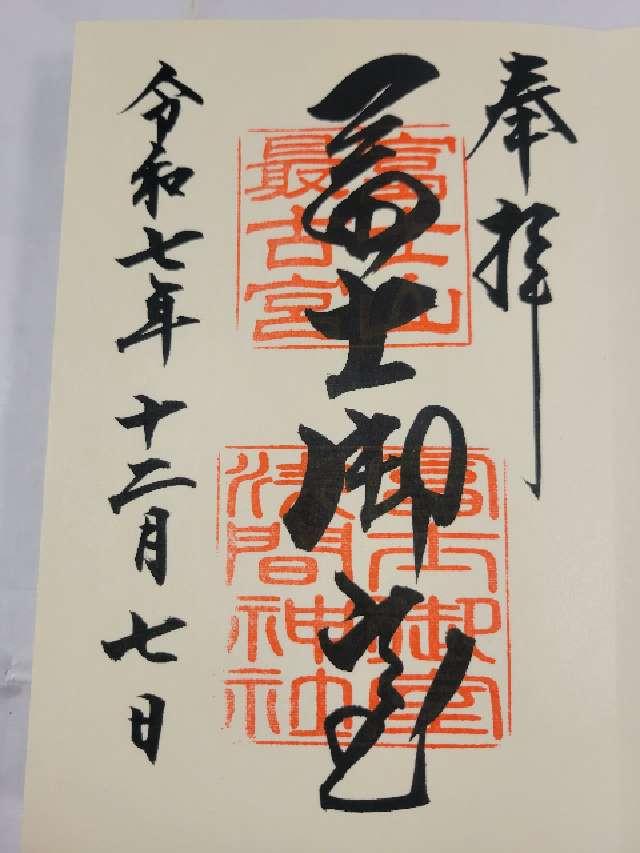 奉拝
冨士御室
富士山
最古宮
冨士御室
浅間神社
令和七年十二月七日